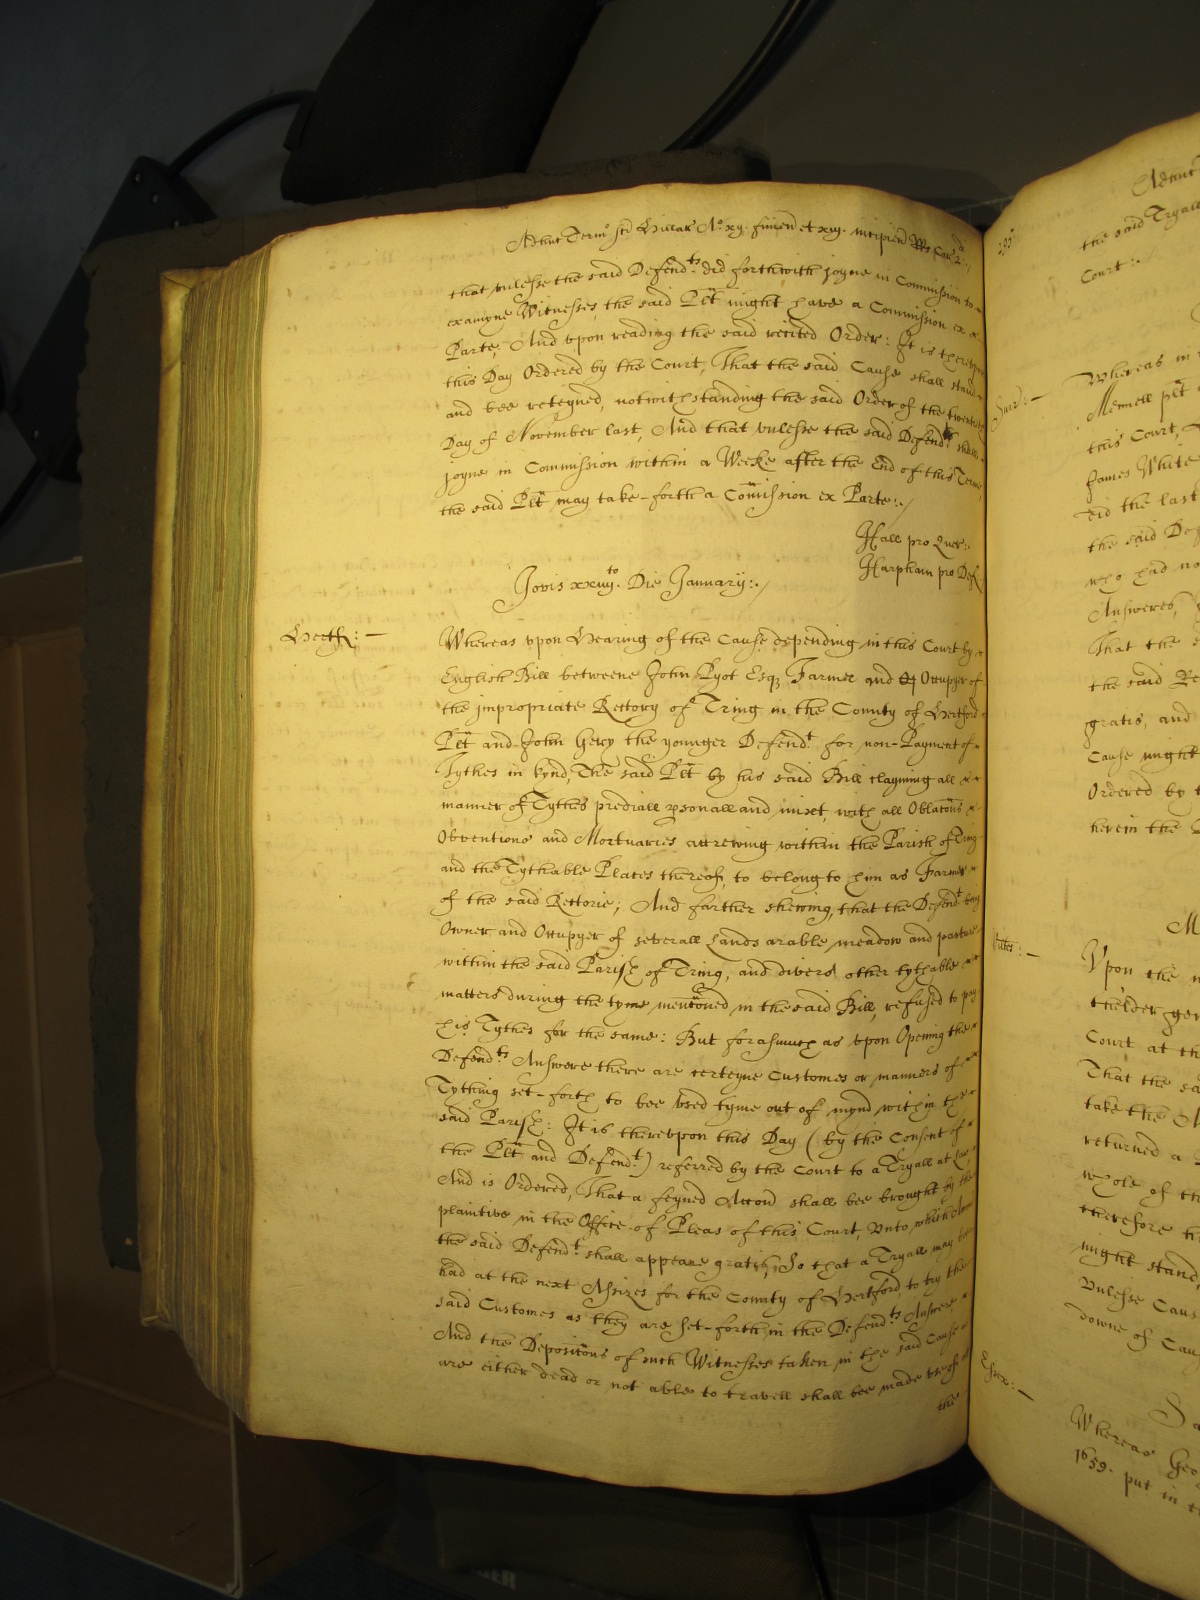 Adhuc Termo Sci Hillar Ao xij. finien et xiij. incipien Rs Car: 2di:/
that vnlesse the said Defendts. did forthwith joyne in Commission to
examyne Witnesses, the said Plt might have a Commission ex
Parte, And vpon reading the said recited Order: It is therevpon
this Day Ordered by the Court, That the said Cause shall stand
and bee reteyned, notwithstanding the said Order of the twentith
Day of November last, And that vnlesse the said Defendts shall
joyne in Commission within a Weeke after the End of this Terme,
the said Plt may take-forth a Comission ex Parte:/
Hall pro Quer:
Harpham pro Def:
Jovis xxiiijto. Die January:/
Hertf:
Whereas vpon Hearing of the Cause depending in this Court by
English Bill betweene John Pyot Esqz Farmer and Occupyer of
the impropriate Rectory of Tring in the County of Hertford
Plt and John Gery the younger Defendt. for non-Payment of
Tythes in kynd, The said Plt by his said Bill clayming all
manner of Tythes prediall psonall and mixt, with all Oblacons
Obventions and Mortuaries accrewing within the Parish of Tring
and the Tythable Places thereof, to belong to him as Farmer
of the said Rectorie; And farther shewing, that the Defendt. being
Owner and Occupyer of severall Lands arable meadow and pasture
within the said Parish of Tring, and divers other tythable
matters during the tyme menconed in the said Bill, refused to pay
his Tythes for the same: But forasmuch as vpon Opening the
Defendts. Answere there are certeyne Customes or manners of
Tything set-forth to bee vsed tyme out of mynd within the
said Parish: It is therevpon this Day (by the Consent of
the Plt and Defendt.) referred by the Court to a Tryall at Law,
And is Ordered, That a feyned Accon shall bee brought by the
plaintive in the Office of Pleas of this Court, Vnto which Accon
the said Defendt. shall appeare gratis, So that a Tryall may bee
had at the next Assizes for the County of Hertford, to try the
said Customes as they are set-forth in the Defendts Answere,
And the Depositons of such Witnesses taken in the said Cause
are either dead or not able to travell shall bee made vse of
the
295
Adhuc
the said Tryall
Court:
Surr:
Whereas in
Mennell plt
this Court,
James White
did the last
the said Def
who had no
Answeres,
That the
the said
gratis, and
Cause might
Ordered by
herein the
M
Vpon the
Court at th
That the sa
take the
returned a
whole of th
therefore
might stand,
Vnlesse Caus
downe of Cau
Essex:
Whereas Geo
1659. put in